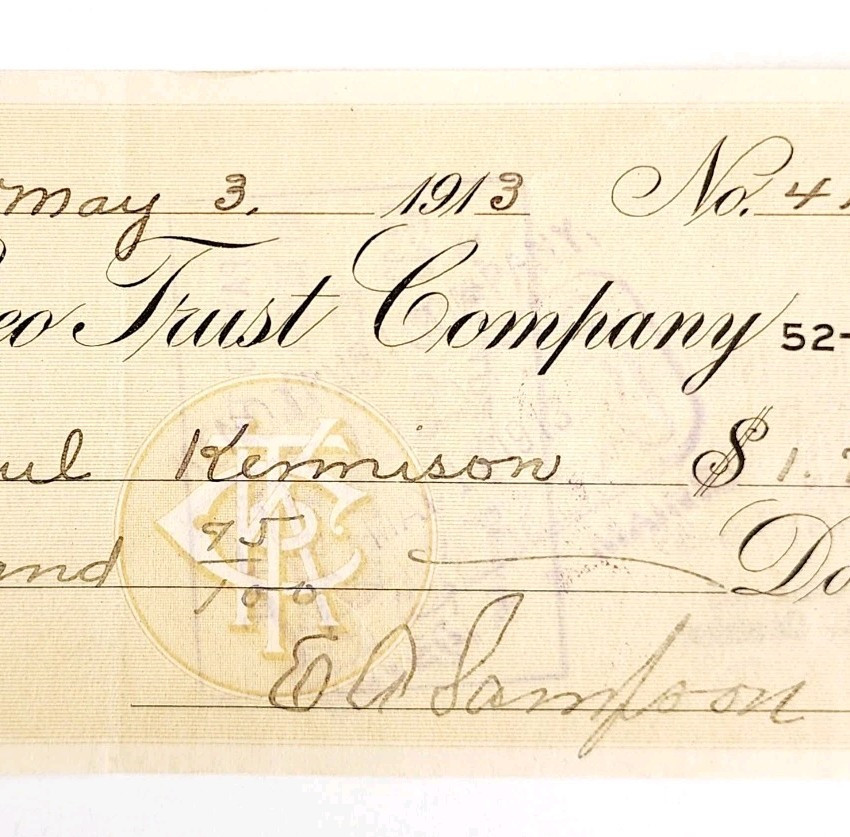 May 3. 1913 No. 4
eo Trust Company 52-
ul Kennison $ 1.
and 75/100 Do
E A Sampson